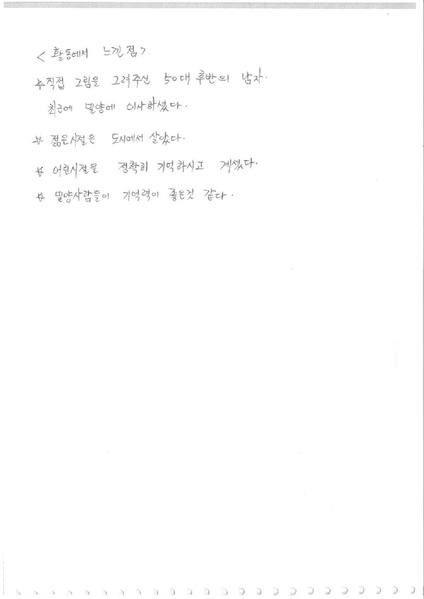 < 활동에서 느낀 점 >
☆ 직접 그림을 그려주신 50대 후반의 남자.
최근에 밀양에 이사하셨다.
☆ 젊은시절은 도시에서 살았다.
☆ 어린시절을 정확히 기억하시고 계셨다.
☆ 밀양사람들이 기억력이 좋은것 같다.